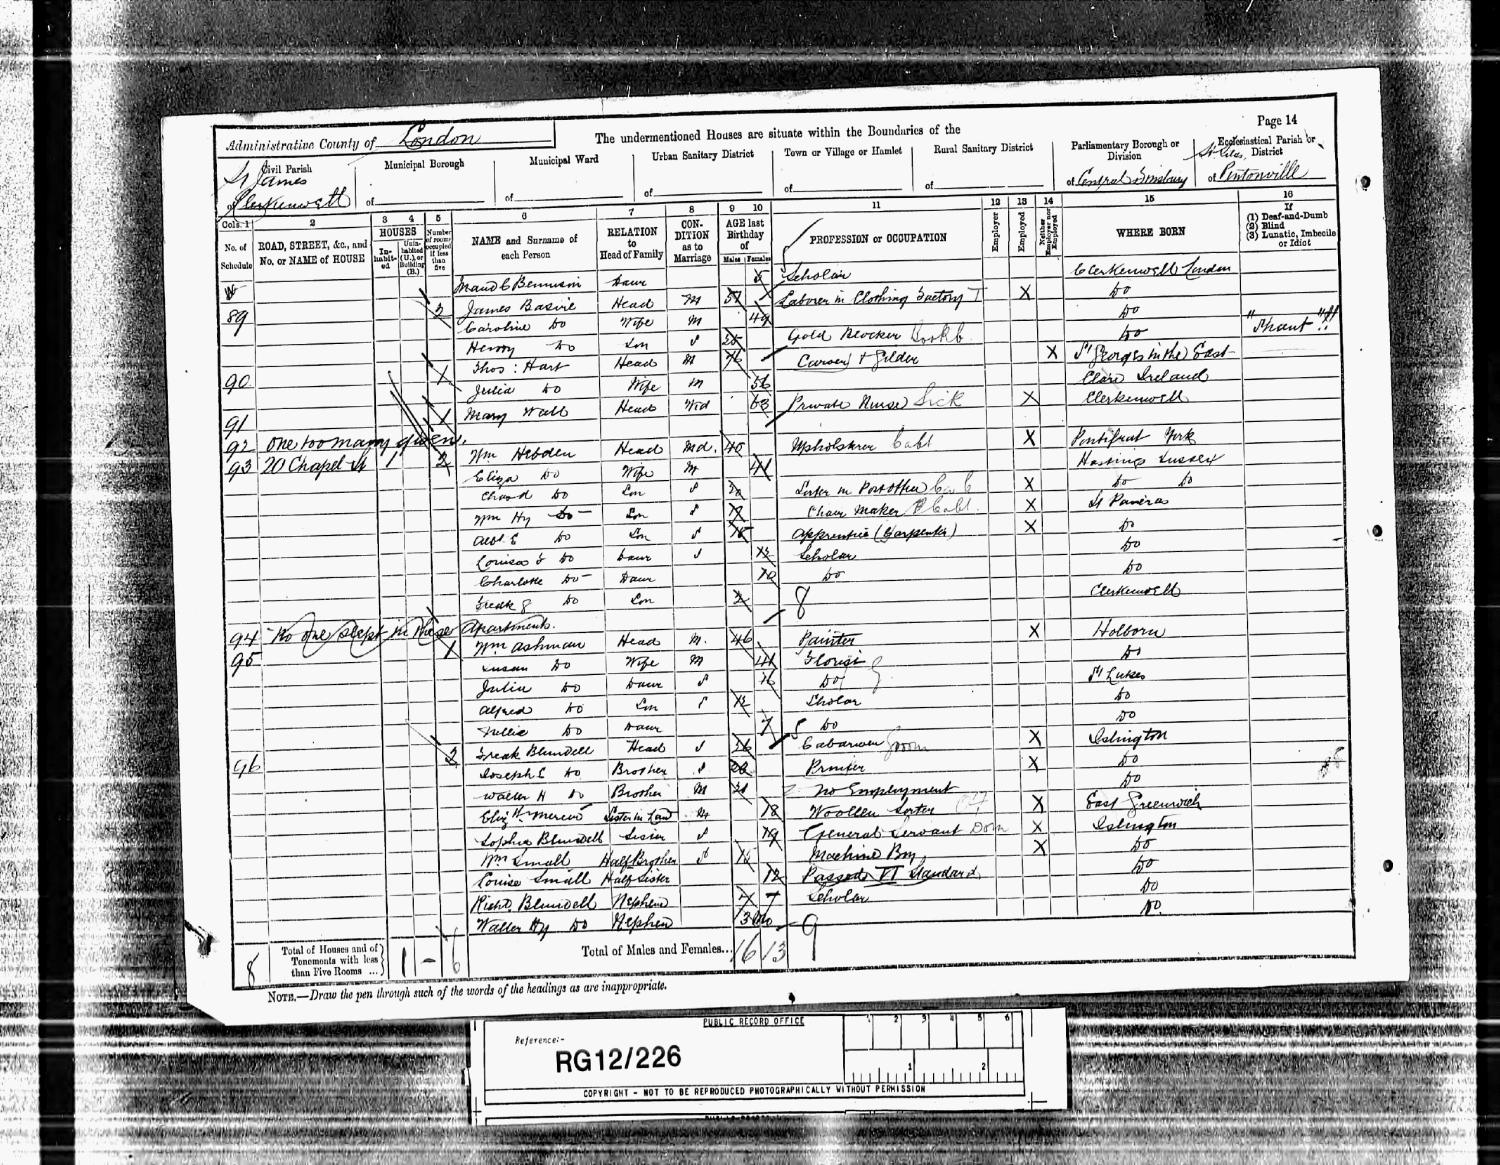 Page 14
Administrative County of London
The undermentioned Houses are situate within the Boundaries of the
Civil Parish of St James Clerkenwell
Municipal Borough of
Municipal Ward of
Urban Sanitary District of
Town or Village or Hamlet of
Rural Sanitary District of
Parliamentary Borough or Division of Central Finsbury
Ecclesiastical Parish or District of Pentonville
Cols. 1 2 3 4 5 6 7 8 9 10 11 12 13 14 15 16
No. of Schedule
ROAD, STREET, &c., and No. or NAME of HOUSE
HOUSES
Inhabited
Uninhabited (U.) or Building (B.)
Number of rooms occupied if less than five
NAME and Surname of each Person
RELATION to Head of Family
CONDITION as to Marriage
AGE last Birthday of
Males Females
PROFESSION or OCCUPATION
Employer
Employed
Neither Employer nor Employed
WHERE BORN
If (1) Deaf-and-Dumb (2) Blind (3) Lunatic, Imbecile or Idiot
Maud C Bennison Daur 5 Scholar Clerkenwell London
89 2 James Head M 51 Laborer in Clothing Factory X Do
Caroline Do Wife M 49 Do
Henry Do Son S Gold Blocker Do
90 1 Thos: Hart Head M 76 Carver & Gilder X St Georges in the East
Julia Do Wife M 56 Clare Ireland
91 1 Mary Wall Head Wid 63 Private Nurse Sick X Clerkenwell
92 one too many given.
93 20 Chapel St 1 2 Wm Hebden Head Md. 45 Upholsterer X Pontifrat York
Eliza Do Wife M 41 Hastings Sussex
Do Son S 20 Sorter in Post office X Do Do
Wm Hy Do Son S 17 Chair Maker X St Pancras
E Do Son S 15 Apprentice (Carpenter) X Do
Louisa Do Daur S Scholar Do
Charlotte Do Daur 10 Do Do
Do Son 2 8 Clerkenwell
94 No one slept in these Apartments.
95 1 Wm Ashman Head M. 46 Painter X Holborn
Susan Do Wife M 41 Florist Do
Julia Do Daur S 16 Do St Lukes
Alfred Do Son S Scholar Do
Nellie Do Daur 7 5 Do Do
96 2 Blundell Head S 26 X Islington
Joseph E Do Brother S Printer X Do
Walter H Do Brother M 21 No Employment Do
Sister in Law M 18 Woollen Sorter X East Greenwich
Sophia Blundell Sister S 19 General Servant Dom X Islington
Wm Small Half Brother S Machine Boy X Do
Louisa Small Half Sister 12 Passed VI Standard Do
Blundell Nephew 7 Scholar Do
Walter Hy Do Nephew 9 Do
8 Total of Houses and of Tenements with less than Five Rooms ... 1 - 6 Total of Males and Females... 16 13
NOTE.—Draw the pen through such of the words of the headings as are inappropriate.
PUBLIC RECORD OFFICE
1 2 3 4 5 6
Reference:-
RG12/226
1 2
COPYRIGHT - NOT TO BE REPRODUCED PHOTOGRAPHICALLY WITHOUT PERMISSION